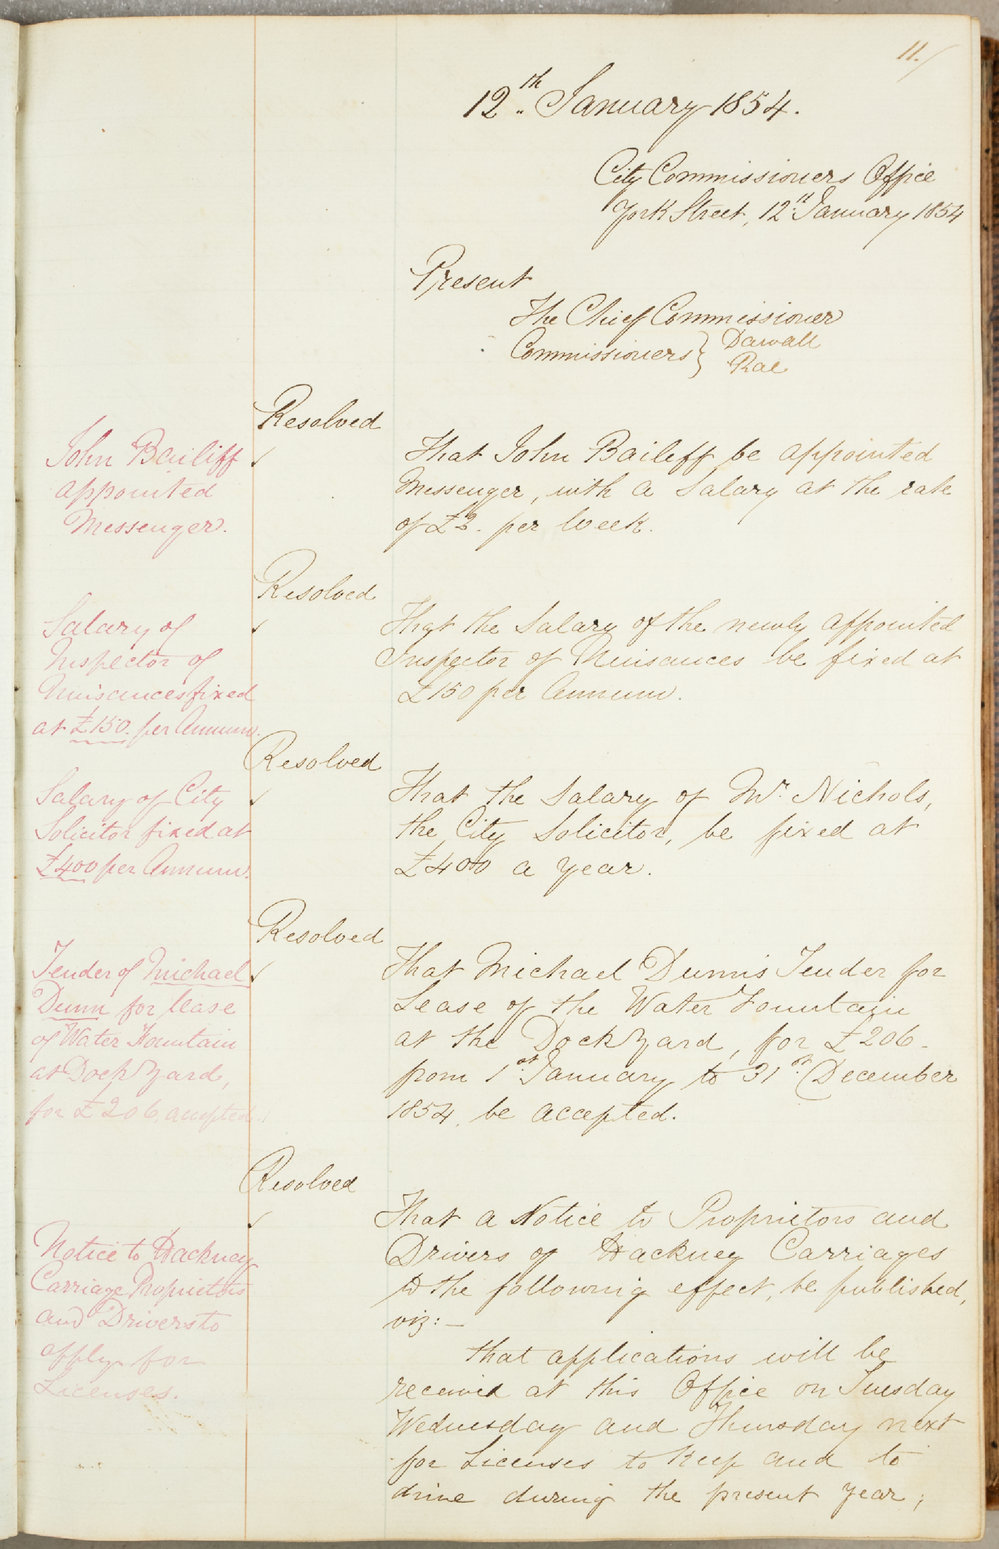 11.
12th January 1854.
City Commissioners Office
York Street, 12th January 1854
Present
The Chief Commissioner
Commissioners } Darvall
Rae
Resolved
John Bailiff
appointed
Messenger.
That John Baileff be appointed
Messenger, with a Salary at the rate
of £2. per Week.
Resolved
Salary of
Inspector of
Nuisances fixed
at £150. per Annum.
That the Salary of the newly appointed
Inspector of Nuisances be fixed at
£150 per Annum.
Resolved
Salary of City
Solicitor fixed at
£400 per Annum.
That the Salary of Mr Nichols,
the City Solicitor, be fixed at
£400 a year.
Resolved
Tender of Michael
Dunn for lease
of Water Fountain
at Dock Yard,
for £206, accepted.
That Michael Dunn's Tender for
Lease of the Water Fountain
at the Dock Yard, for £206.
from 1st January to 31st December
1854, be accepted.
Resolved
Notice to Hackney
Carriage Proprietors
and Drivers to
apply for
Licenses.
That a Notice to Proprietors and
Drivers of Hackney Carriages
to the following effect, be published,
viz:—
that applications will be
received at this Office on Tuesday
Wednesday and Thursday next
for Licenses to keep and to
drive during the present year;